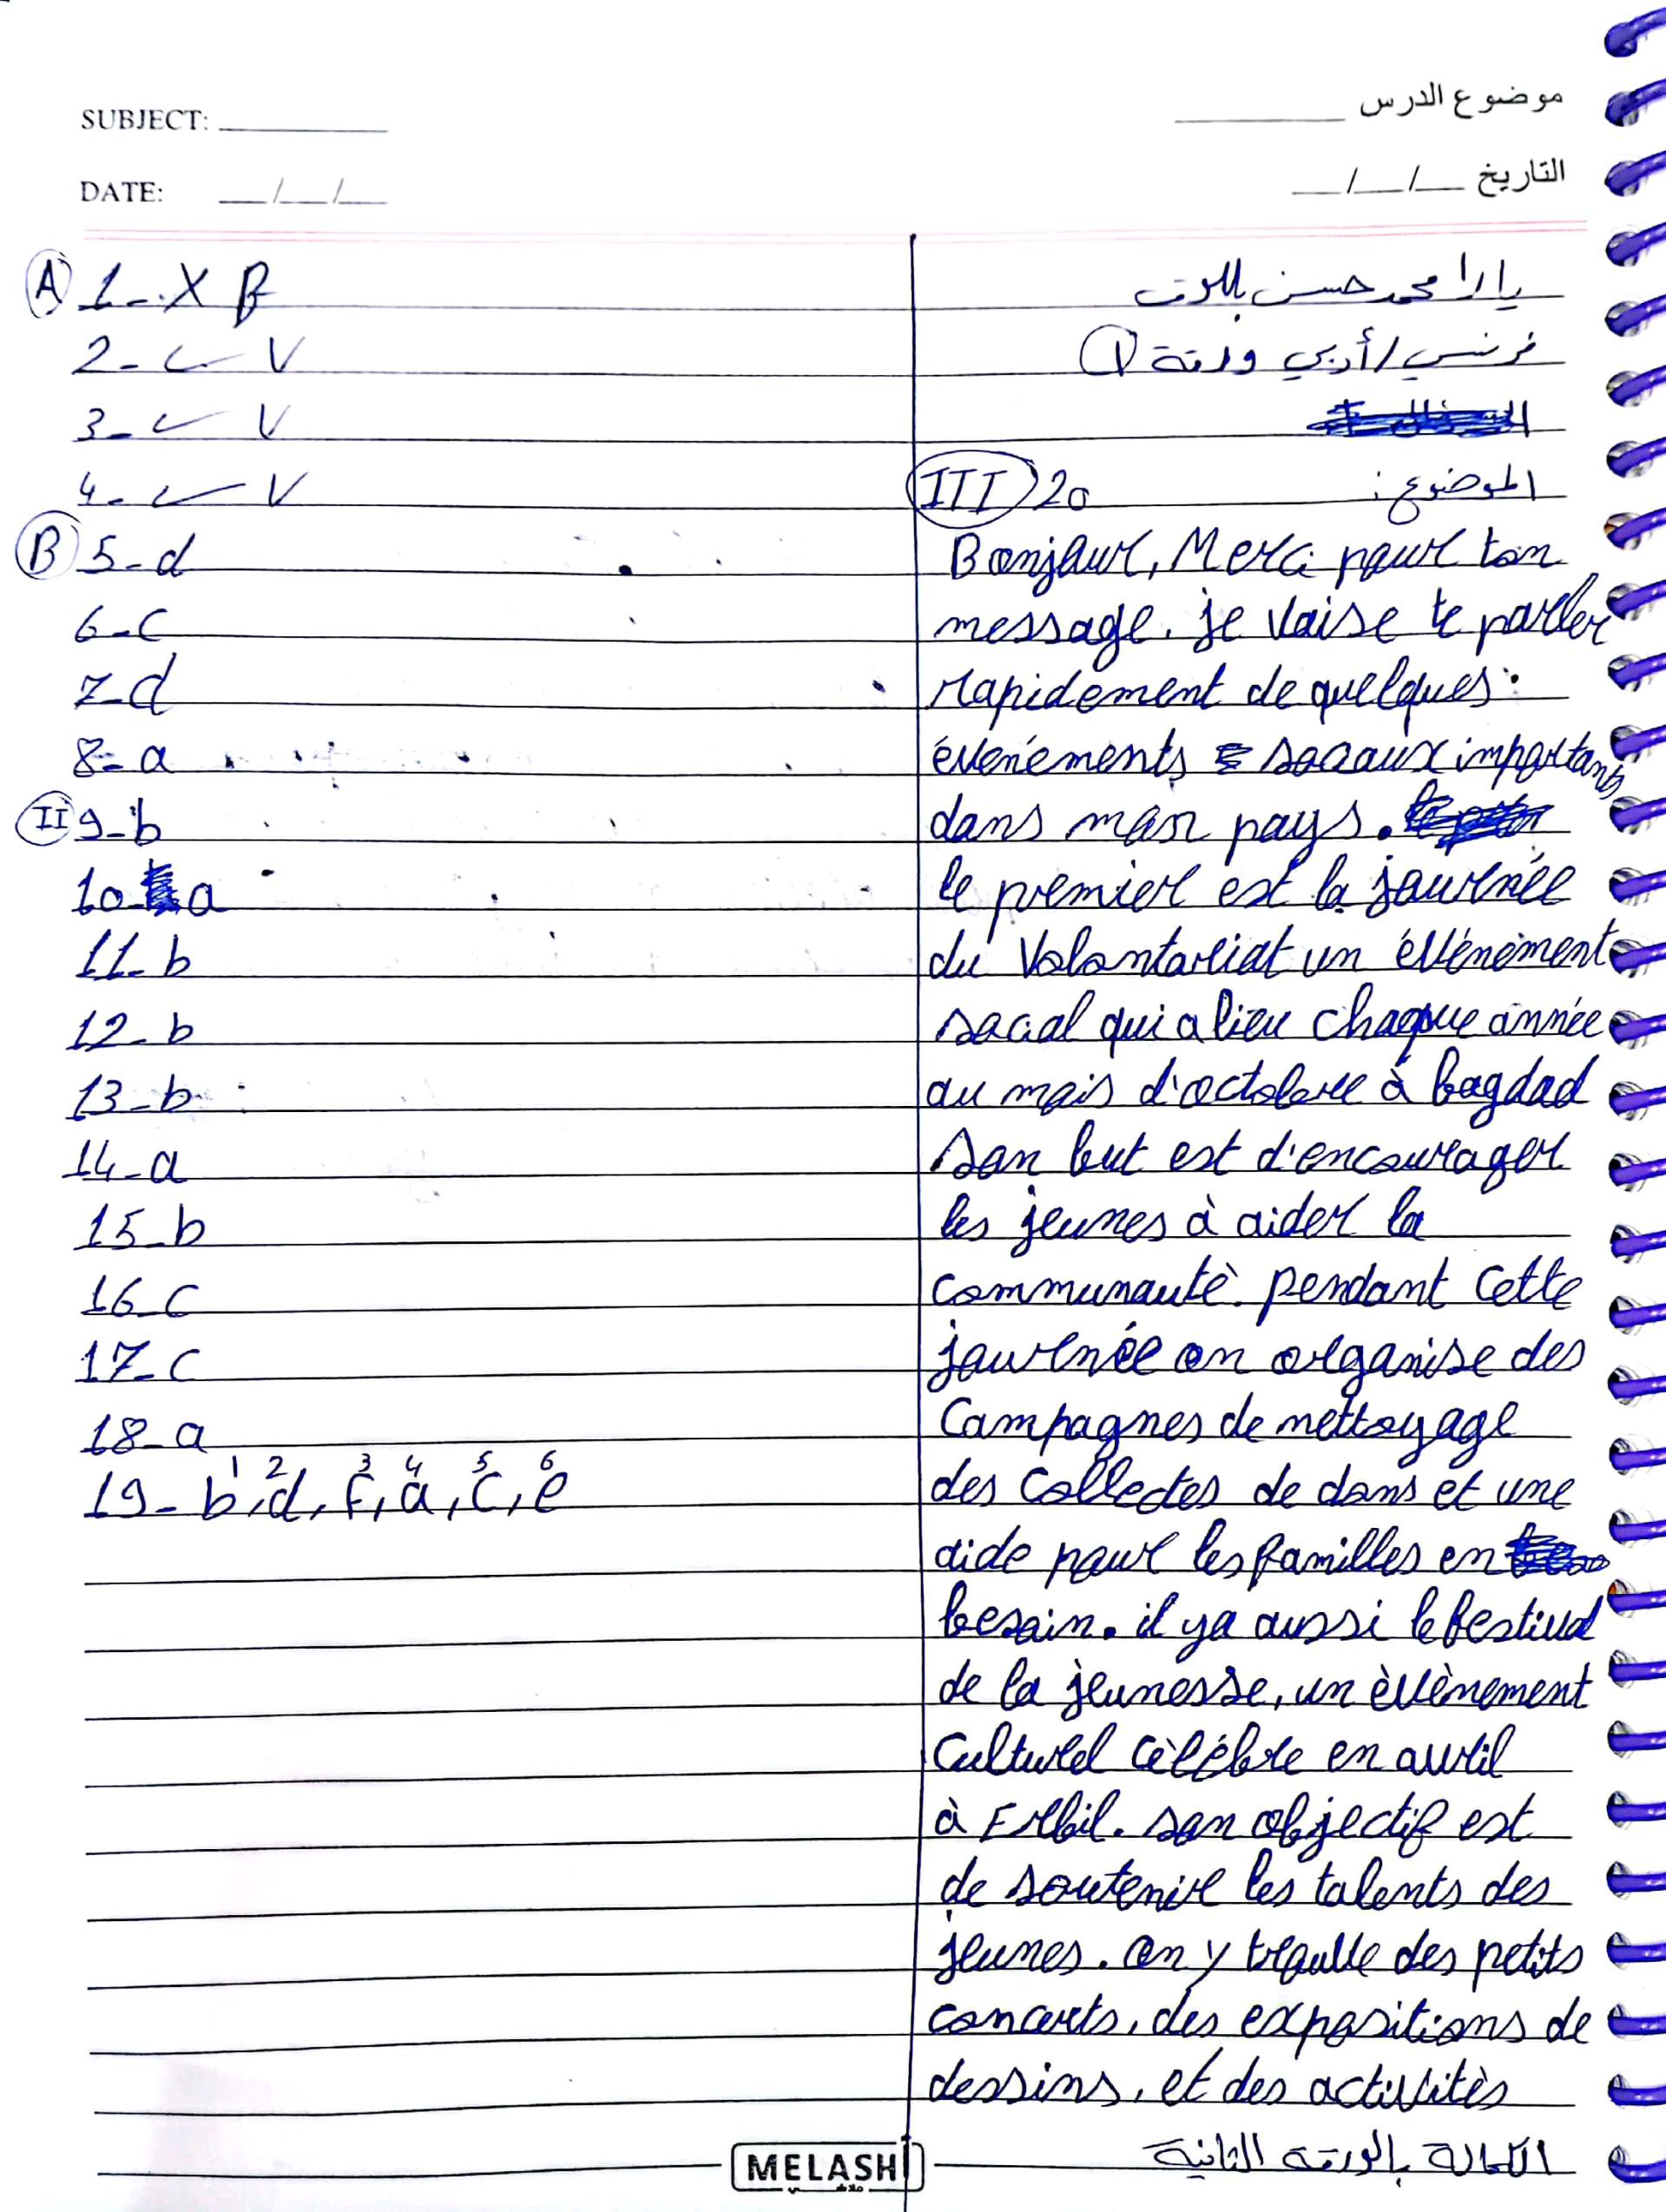 SUBJECT:
موضوع الدرس
DATE: __/__/__
التاريخ __/__/__
A 1-. X F
2- ✓ V
3- ✓ V
4- ✓ V
B 5-d
6-c
7-d
8-a
II 9-b
10 a
11-b
12-b
13-b
14-a
15-b
16-c
17-c
18-a
1 2 3 4 5 6
19- b, d, f, a, c, e
يارا محمد حسن
فرنسي/أدبي ورقة 1
الموضوع:
III 20
Bonjour, Merci pour ton
message. je vaise te parler
rapidement de quelques
événements sociaux importants
dans mon pays.
le premier est la journée
du Volontariat un événement
social qui a lieu chaque année
au mois d'octobre à bagdad
son but est d'encourager
les jeunes à aider la
communautè. pendant cette
journée on organise des
Campagnes de nettoyage
des Collectes de dons et une
aide pour les familles en
besoin. il ya aussi le festival
de la jeunesse, un èvènement
Culturel cèlébre en avril
à Erbil. son objectif est
de soutenir les talents des
jeunes. on y trouve des petits
concerts, des expositions de
dessins, et des activitès
التكملة بالورقة الثانية
MELASH